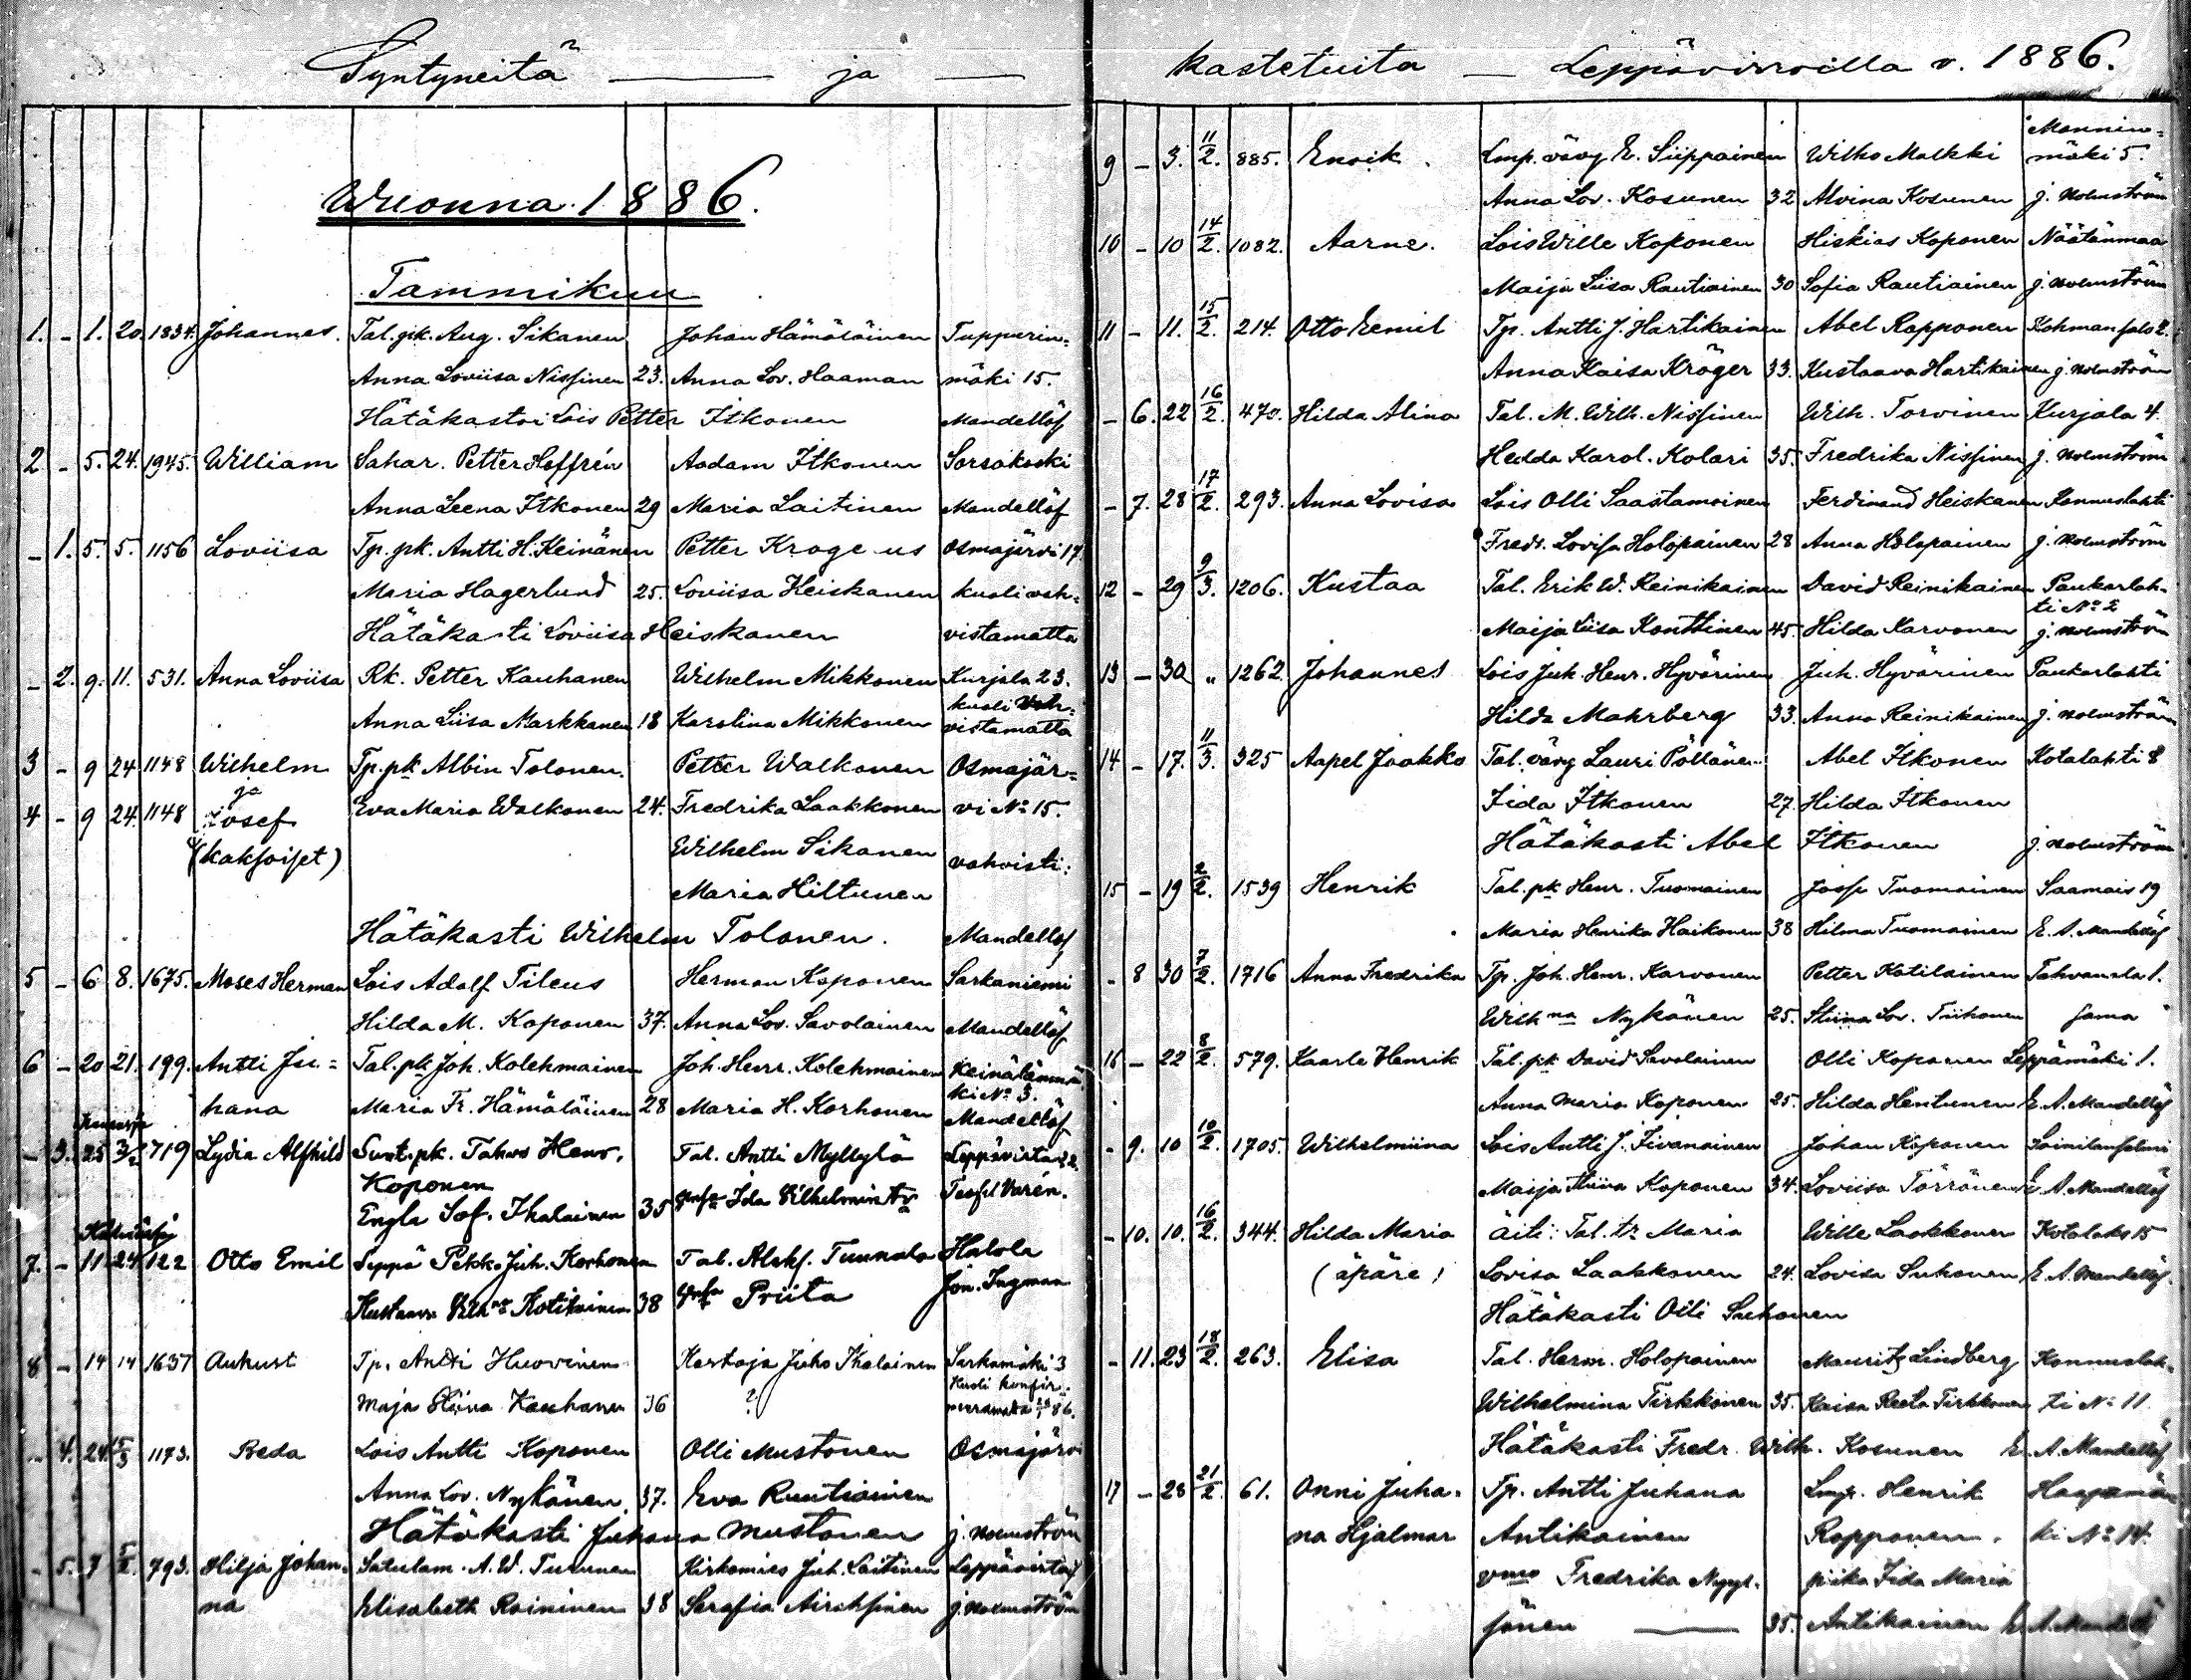 Syntyneitä — ja —
Wuonna 1886.
Tammikuu
1. - 1. 20. 1834. Johannes. Tal. pk. Aug. Sikanen Johan Hämäläinen Tuppurin-
Anna Loviisa Nissinen 23. Anna Lov. Haaman mäki 15.
Hätäkastoi Lois Petter Itkonen Mandellöf
2 - 5. 24. 1945. William Sahar. Petter Hoffrén Aadam Itkonen Sorsakoski
Anna Leena Itkonen 29 Maria Laitinen Mandellöf
- 1. 5. 5. 1156 Loviisa Tp. pk. Antti H. Keinänen Petter Krogerus Osmajärvi 17.
Maria Hagerlund 25. Loviisa Heiskanen kuoli vah-
Hätäkasti Loviisa Heiskanen vistamatta
- 2. 9. 11. 531. Anna Loviisa Rk. Petter Kauhanen Wilhelm Mikkonen Kurjala 23.
kuoli vah-
Anna Liisa Markkanen 18 Karolina Mikkonen vistamatta
3 - 9 24 1148 Wilhelm Tp. pk Albin Tolonen. Petter Walkonen Osmajär-
ja
4 - 9 24. 1148 Josef Eva Maria Walkonen 24. Fredrika Laakkonen vi No 15.
(kaksoiset) Wilhelm Sikanen vahvisti:
Maria Hiltunen
Hätäkasti Wilhelm Tolonen. Mandellöf
5 - 6 8. 1675. Moses Herman Lois Adolf Tileus Herman Koponen Sarkaniemi
Hilda M. Koponen 37. Anna Lov. Savolainen Mandellöf
6 - 20 21. 199. Antti Ju- Tal. pk Joh. Kolehmainen Joh. Henr. Kolehmainen Keinälänmä
ki No 3.
hana Maria Fr. Hämäläinen 28 Maria H. Korhonen Mandellöf
- 3. 25 3/2 719 Lydia Alfhild Suut. pk. Tahvo Henr. Tal. Antti Myllylä Leppävirta 22.
Koponen
Engla Sof. Ihalainen 35 Ida Vilhelmintr
7. - 11 24 122 Otto Emil Seppä Pekka Juh. Korhonen Tal. Aleks. Tuunala Halola
Kustaava Vilh:na Kotikainen 38 Priita Jon. Ingman
8 - 14 14 1637 Aukust Tp. Antti Huovinen Kertoja Juho Ihalainen Sarkamäki 3
Kuoli konfir-
Maja Stiina Kauhanen 36 ? meeramatta 86.
- 4. 24 15/3 1173. Beda Lois Antti Koponen Olli Mustonen Osmajärvi
Anna Lov. Nykänen 37. Eva Ruutiainen
Hätäkasti Juhana Mustonen J. Holmström
- 5. 7 5/2. 793. Hilja Johan- Satulam. A. W. Turunen Kirkomies Juh. Laitinen Leppävirta
na Elisabeth Raininen 38 Serafia Airaksinen J. Holmström
kastetuita — Leppävirroilla v. 1886.
9 - 3. 11/2. 885. Enoik. Lmp. vävy E. Siippainen Wilho Malkki Mannin-
mäki 5.
Anna Lov. Kosunen 32 Alvina Kosunen J. Holmström
10 - 10 14/2. 1082. Aarne. Lois Wille Koponen Hiskias Koponen Näätänmaa
Maija Liisa Rautiainen 30 Sofia Rautiainen J. Holmström
11 - 11. 15/2. 214. Otto Eemil Tp. Antti J. Hartikainen Abel Rapponen Kohmansalo 2.
Anna Kaisa Kröger 33. Kustaava Hartikainen J. Holmström
- 6. 22 16/2. 470. Hilda Alina Tal. M. Wilh. Nissinen Wilh. Torvinen Kurjala 4.
Hedda Karol. Kolari 35. Fredrika Nissinen J. Holmström
- 7. 28 17/2. 293. Anna Lovisa Lois Olli Saastamoinen Ferdinand Heiskanen Konnuslahti
Fredr. Lovisa Holopainen 28 Anna Holopainen J. Holmström
12 - 29 9/3. 1206. Kustaa Tal. Erik W. Reinikainen David Reinikainen Paukarlah-
ti No 2
Maija Liisa Konttinen 45. Hilda Karvonen J. Holmström
13 - 30 " 1262. Johannes Lois Juh. Henr. Hyvärinen Juh. Hyvärinen Paukarlahti
Hilda Mahrberg 33. Anna Reinikainen J. Holmström
14 - 17. 11/3. 325 Aapel Jaakko Tal. vävy Lauri Pöllänen Abel Itkonen Kotalahti 8
Iida Itkonen 27. Hilda Itkonen
Hätäkasti Abel Itkonen J. Holmström
15 - 19 2/2. 1539 Henrik Tal. pk Henr. Tuomainen Josef Tuomainen Saamais 19
Maria Henrika Haikonen 38 Hilma Tuomainen E. A. Mandellöf
- 8 30 7/2. 1716 Anna Fredrika Tp. Joh. Henr. Karvonen Petter Kotilainen Tahvanala 1.
Wilh:na Nykänen 25. Stiina Lov. Tiihonen sama
16 - 22 8/2. 579. Kaarle Henrik Tal. pk David Savolainen Olli Koponen Leppämäki 1.
Anna Maria Koponen 25. Hilda Hentunen E. A. Mandellöf
- 9. 10 10/2. 1705. Wilhelmiina Lois Antti J. Iivanainen Johan Koponen Soinilansalmi
Maija Stiina Koponen 34. Loviisa Törrönen E. A. Mandellöf
- 10. 10. 16/2. 344. Hilda Maria Äiti: Tal. tr Maria Wille Laakkonen Kotalaks 15
(äpäre) Lovisa Laakkonen 24. Lovisa Suhonen E. A. Mandellöf.
Hätäkasti Olli Suhonen
- 11. 23 18/2. 263. Elisa Tal. Herm. Holopainen Mauritz Lindberg Konnuslah-
Wilhelmina Tirkkonen 35. Kaisa Reeta Tirkkonen ti No 11.
Hätäkasti Fredr. Wilh. Kosunen E. A. Mandellöf
17 - 28 21/2. 61. Onni Juha- Tp. Antti Juhana Lmp. Henrik Haapamä
na Hjalmar Antikainen Ropponen. ki No 14.
vmo Fredrika Nyys- piika Iida Maria
sönen — 35. Antikainen E. A. Mandellöf